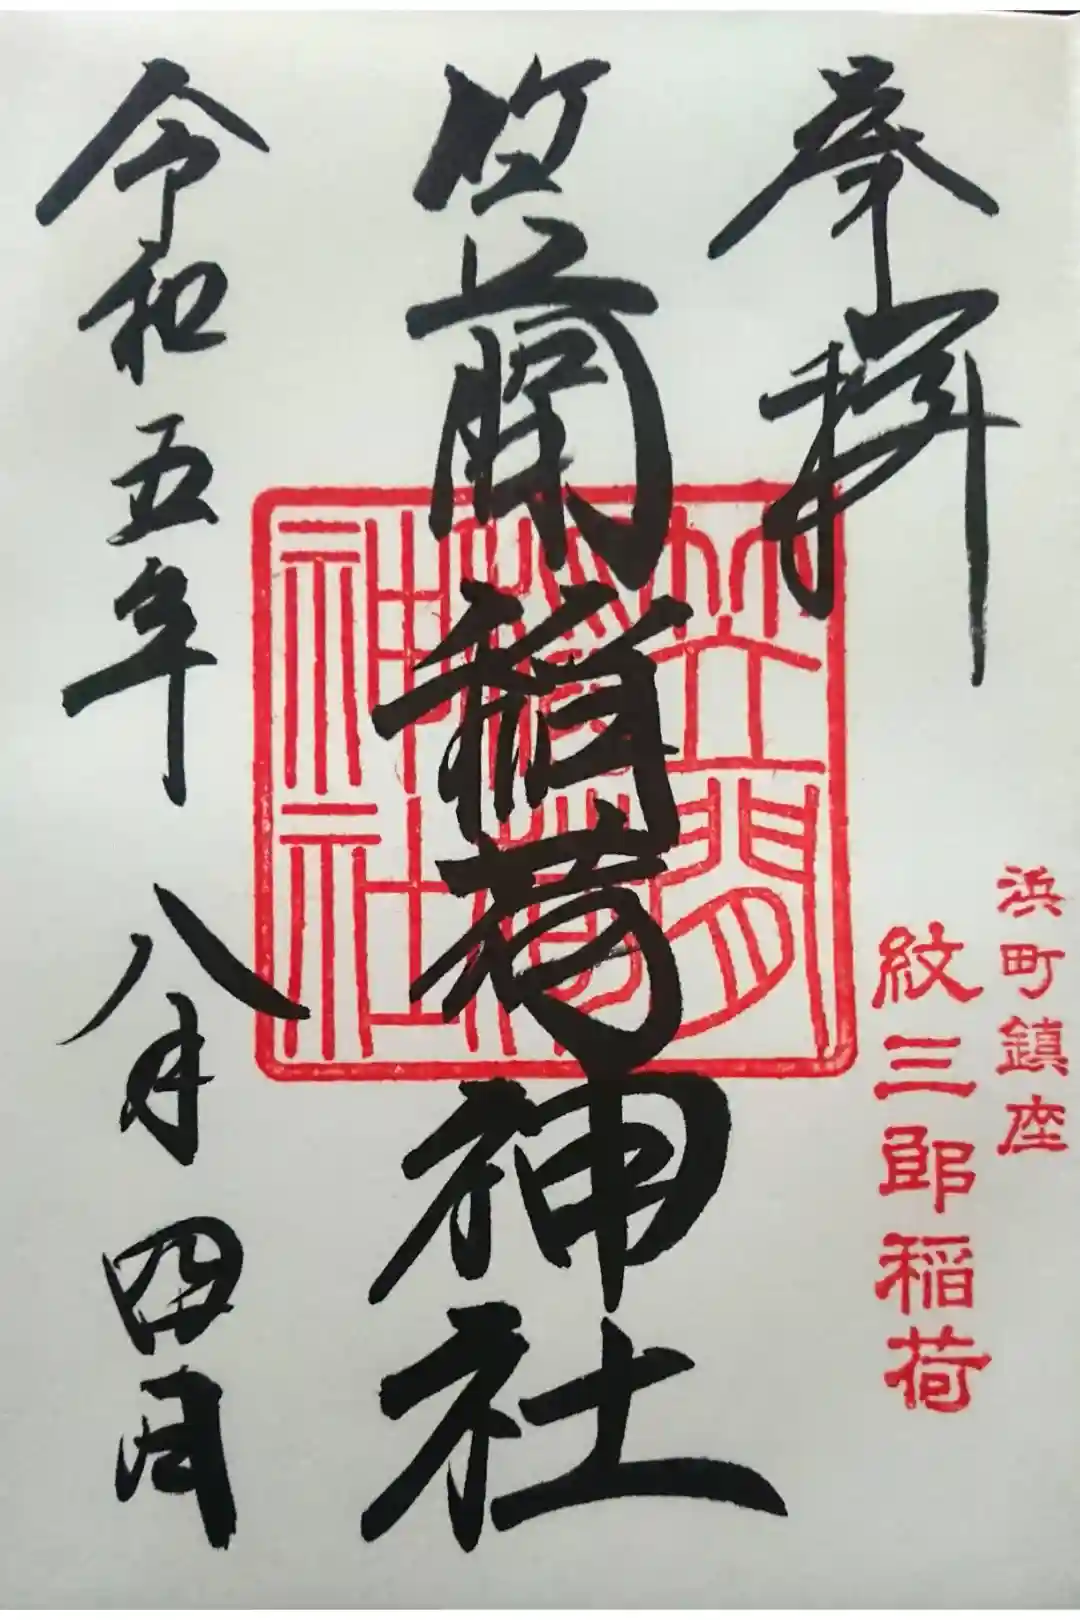 奉拝
浜町鎮座
紋三郎稲荷
笠間稲荷神社
笠間
稲荷
神社
令和五年 八月 四日